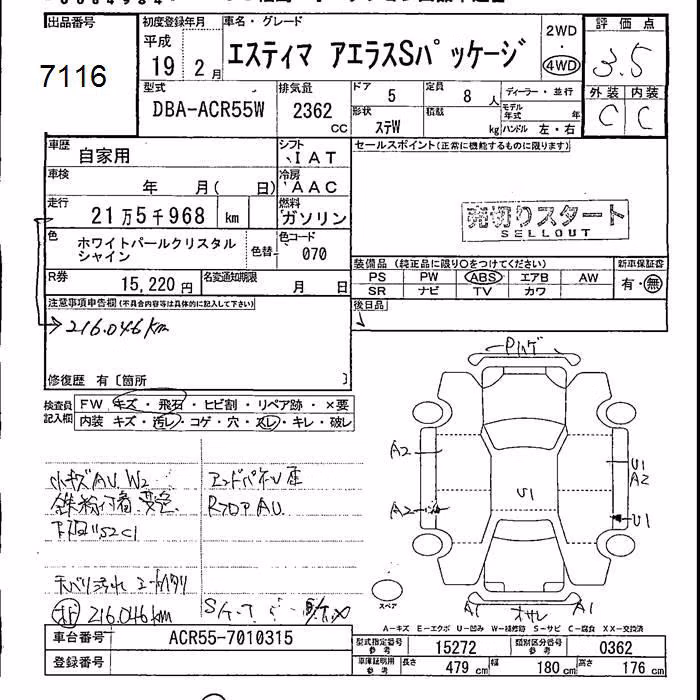 出品番号 初度登録年月 車名・グレード 2WD 評価点
平成 ・
7116 19 2月 エスティマ アエラスSパッケージ 4WD 3.5
型式 排気量 ドア 定員 ディーラー・並行 外装 内装
DBA-ACR55W 2362 CC 5 8人 モデル年式 年 C C
形状 ステW 積載 kg ハンドル 左・右
車歴 自家用 シフト IAT セールスポイント(正常に機能するものに限ります)
車検 年 月( 日) 冷房 AAC
走行 21万5千968 km 燃料 ガソリン 売切りスタート
SELLOUT
色 ホワイトパールクリスタル 色替 色コード
シャイン 070
装備品 (純正品に限り○をつけてください) 新車保証書
R券 15,220円 名変通知期限 月 日 PS PW ABS エアB AW 有・無
SR ナビ TV カワ
注意事項申告欄(不具合内容等は具体的に記入して下さい) 後日品
→216.046km
修復歴 有〔箇所 〕
検査員 FW キズ・飛石・ヒビ割・リペア跡・×要
記入欄 内装 キズ・汚レ・コゲ・穴・スレ・キレ・破レ
小キズAU.W2
RフロアAU.
下廻りS2C1
216.046km
A2 U1
A2
A2 U1 U1
スペア A1 オサレ A1
A-キズ E-エクボ U-凹み W-補修跡 S-サビ C-腐食 XX-交換済
車台番号 ACR55-7010315 型式指定番号 参考 15272 類別区分番号 参考 0362
登録番号 車庫証明用 参考 長さ 479cm 幅 180cm 高さ 176cm